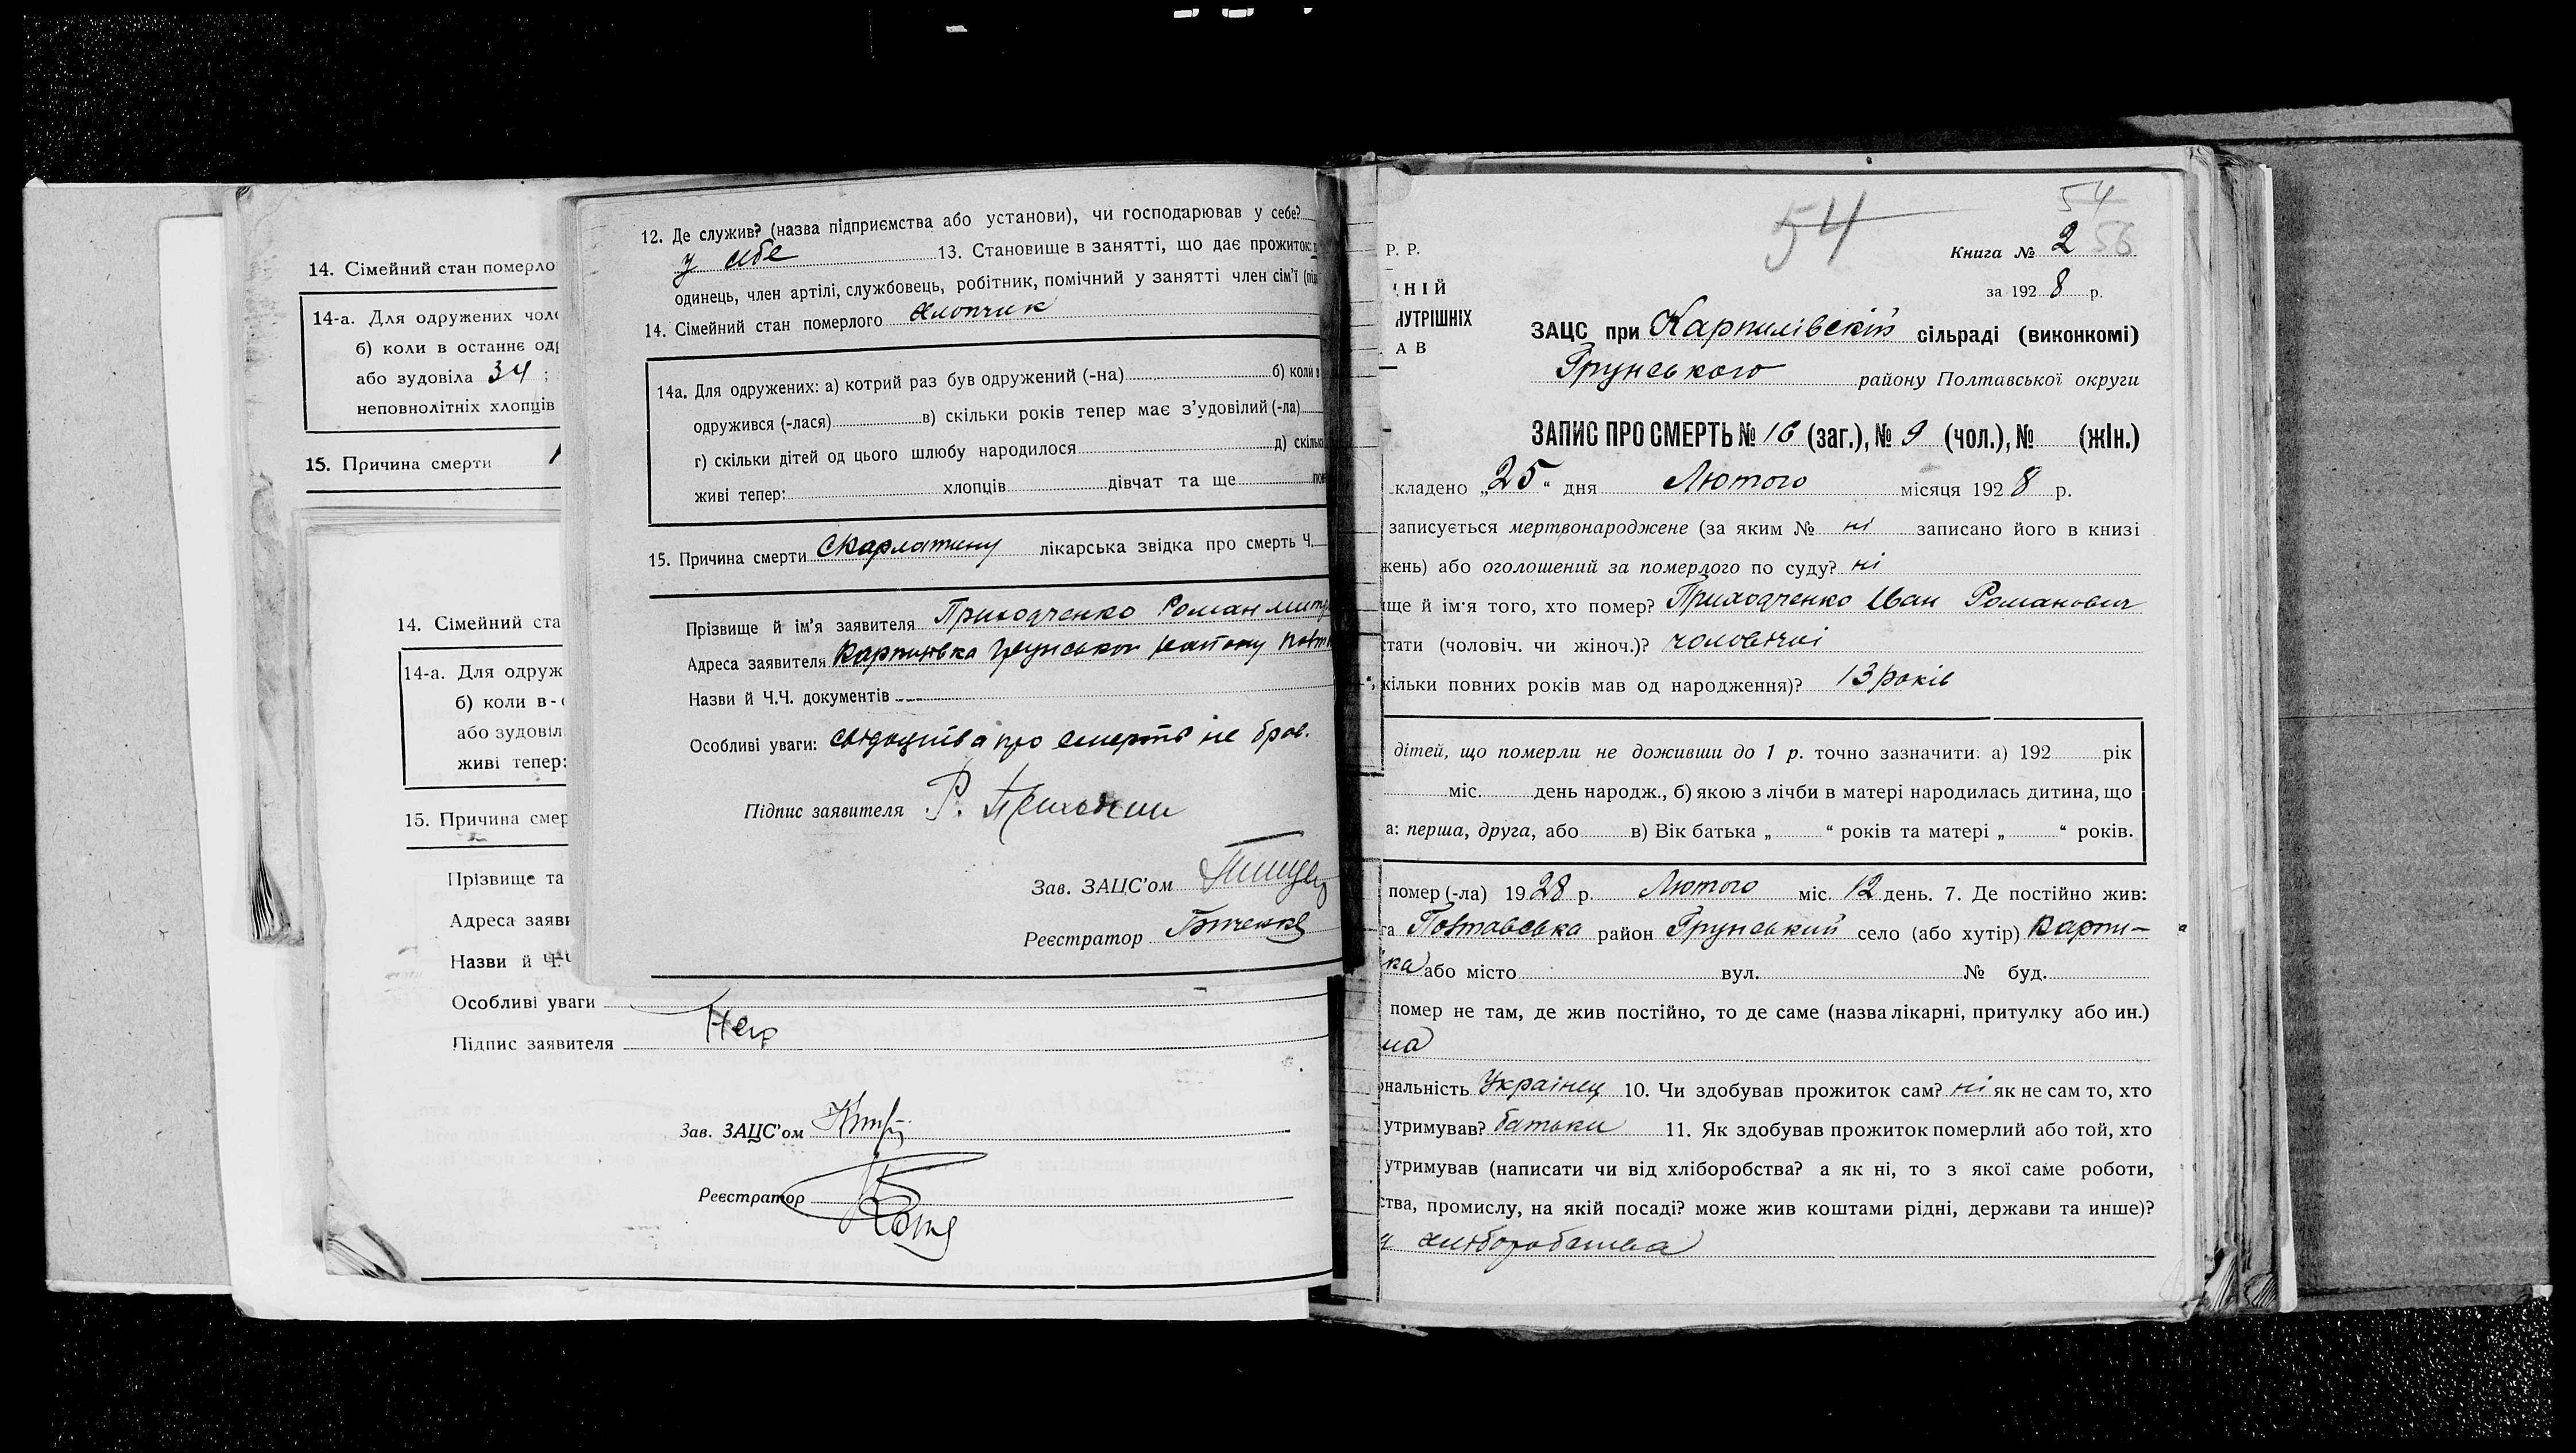 14. Сімейний стан померло
14-а. Для одружених чоло
б) коли в останнє од
або зудовіла 34 ;
неповнолітніх хлопців
15. Причина смерти
14. Сімейний ста
14-а. Для одруж
б) коли в-
або зудовіл
живі тепер:
15. Причина смер
Прізвище та
Адреса заяви
Назви й Ч.Ч
Особливі уваги
Підпис заявителя
Зав. ЗАЦС'ом
Реєстратор
12. Де служив? (назва підприємства або установи), чи господарював у себе?
у себе 13. Становище в занятті, що дає прожиток:
одинець, член артілі, службовець, робітник, помічний у занятті член сім'ї (пі
14. Сімейний стан померлого хлопчик
14а. Для одружених: а) котрий раз був одружений (-на) б) коли в
одружився (-лася) в) скільки років тепер має з'удовілий (-ла)
г) скільки дітей од цього шлюбу народилося д) скільк
живі тепер: хлопців дівчат та ще
15. Причина смерти Скарлатину лікарська звідка про смерть Ч.
Прізвище й ім'я заявителя Приходченко Роман Митр
Адреса заявителя Карпилівка Грунського району Полт
Назви й Ч.Ч. документів
Особливі уваги: свідоцтва про смерть не брав.
Підпис заявителя Р.
Зав. ЗАЦС'ом
Реєстратор
54
54
56
Р. Р.
НІЙ
НУТРІШНІХ
А В
Книга № 2
за 1928 р.
ЗАЦС при Карпилівскій сільраді (виконкомі)
Грунського району Полтавської округи
ЗАПИС ПРО СМЕРТЬ № 16 (заг.), № 9 (чол.), № (жін.)
кладено „25“ дня Лютого місяця 1928 р.
записується мертвонароджене (за яким № ні записано його в книзі
жень) або оголошений за померлого по суду? ні
ще й ім'я того, хто помер? Приходченко Іван Романович
стати (чоловіч. чи жіноч.)? чоловічої
кільки повних років мав од народження)? 13 років
дітей, що померли не доживши до 1 р. точно зазначити: а) 192 рік
міс. день народж., б) якою з лічби в матері народилась дитина, що
а: перша, друга, або в) Вік батька „ “ років та матері „ “ років.
помер (-ла) 1928 р. Лютого міс. 12 день. 7. Де постійно жив:
га Полтавська район Грунський село (або хутір) Карпи-
ка або місто вул. № буд.
помер не там, де жив постійно, то де саме (назва лікарні, притулку або ин.)
нальність Українец 10. Чи здобував прожиток сам? ні як не сам то, хто
утримував? батьки 11. Як здобував прожиток померлий або той, хто
утримував (написати чи від хліборобства? а як ні, то з якої саме роботи,
ства, промислу, на якій посаді? може жив коштами рідні, держави та инше)?
хліборобства